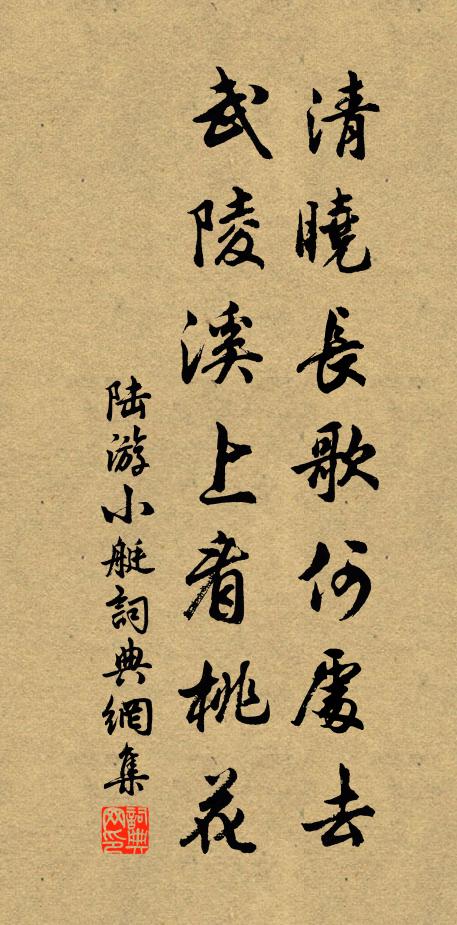 清曉長歌何處去
武陵溪上看桃花
陆游小艇詞典網集
詞典网印